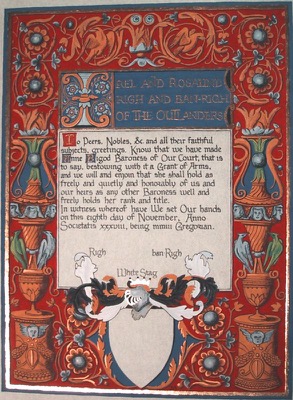 REL AND ROSALIND
RIGH AND BAN-RIGH
OF THE OUTLANDERS
To Peers, Nobles, & and all their faithful
subjects, greetings. Know that we have made
Anne Bigod Baroness of Our Court, that is
to say, bestowing with it a Grant of Arms,
and we will and enjoin that she shall hold as
freely and quietly and honorably of us and
our heirs as any other Baroness well and
freely holds her rank and title.
In witness whereof have We set Our hands
on this eighth day of November, Anno
Societatis xxxviii, being mmiii Gregorian.
Righ ban Righ
White Stag